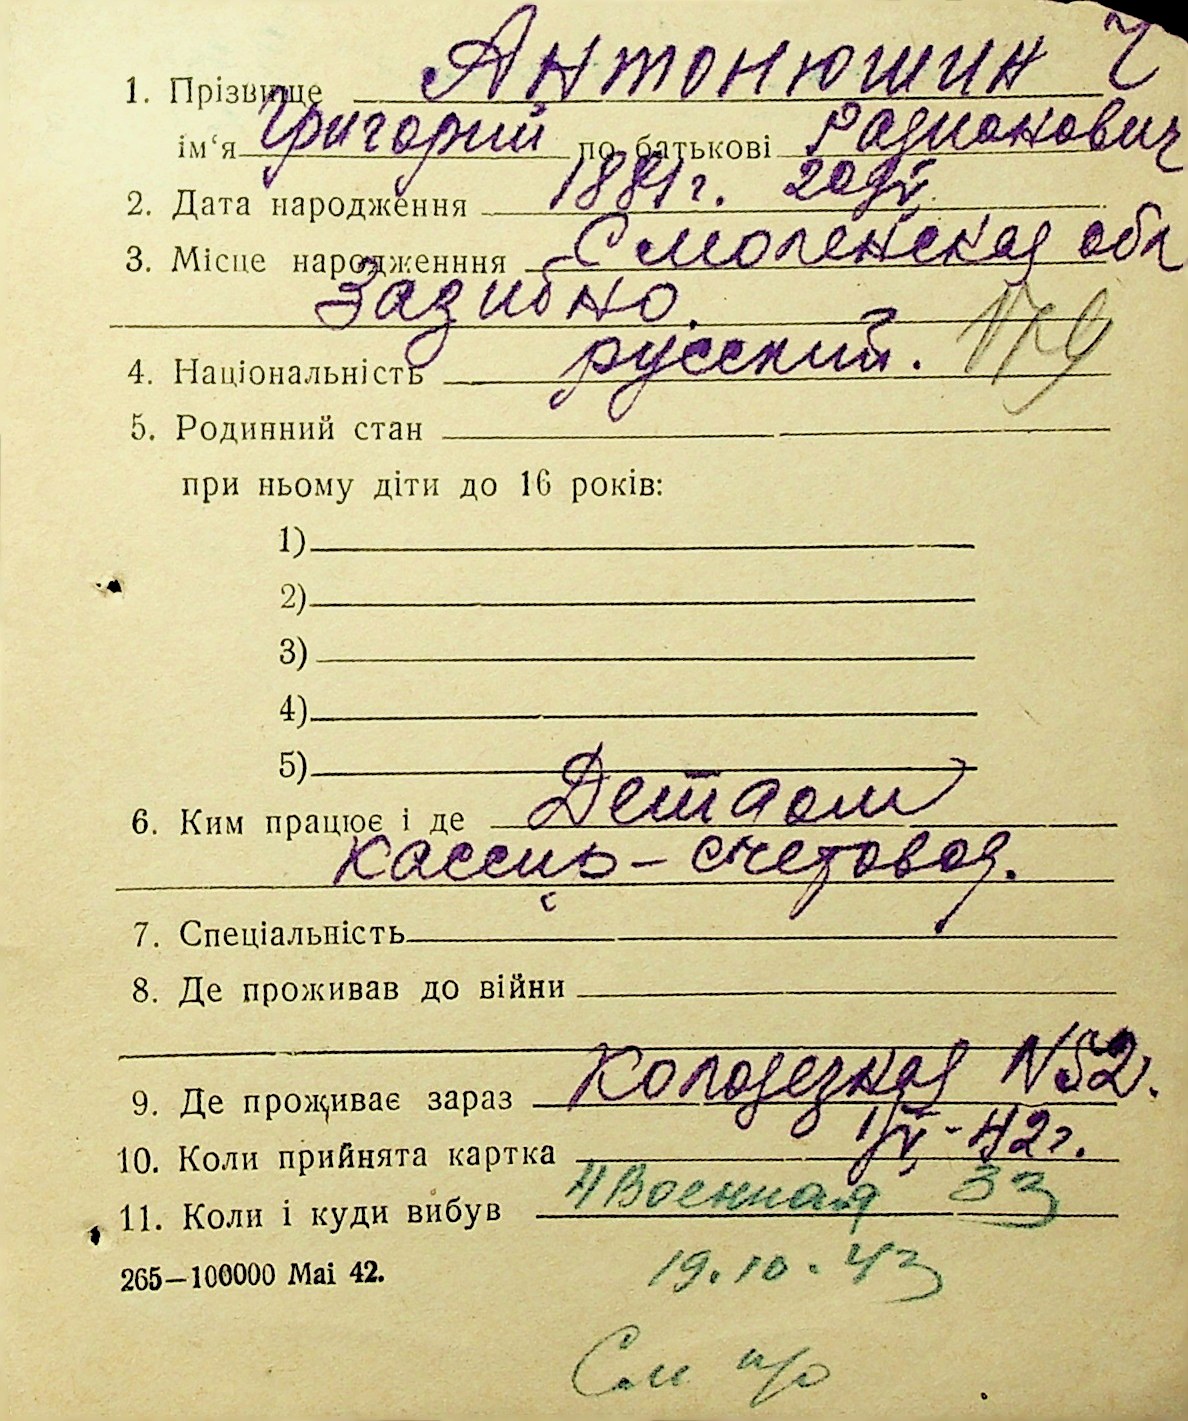 1. Прізвище Антонюшин
ім‘я Григорий по батькові Радионович
2. Дата народження 1881г.
3. Місце народженння Смоленская обл
Зазибно.
4. Національність русский.
5. Родинний стан
при ньому діти до 16 років:
1)
2)
3)
4)
5)
6. Ким працює і де Детдом
кассир-счетовод.
7. Спеціальність
8. Де проживав до війни
9. Де проживає зараз Колодезная N52.
10. Коли прийнята картка 1/V-42г.
11. Коли і куди вибув 4 Военная 33
265—100000 Mai 42.
19.10.43
См